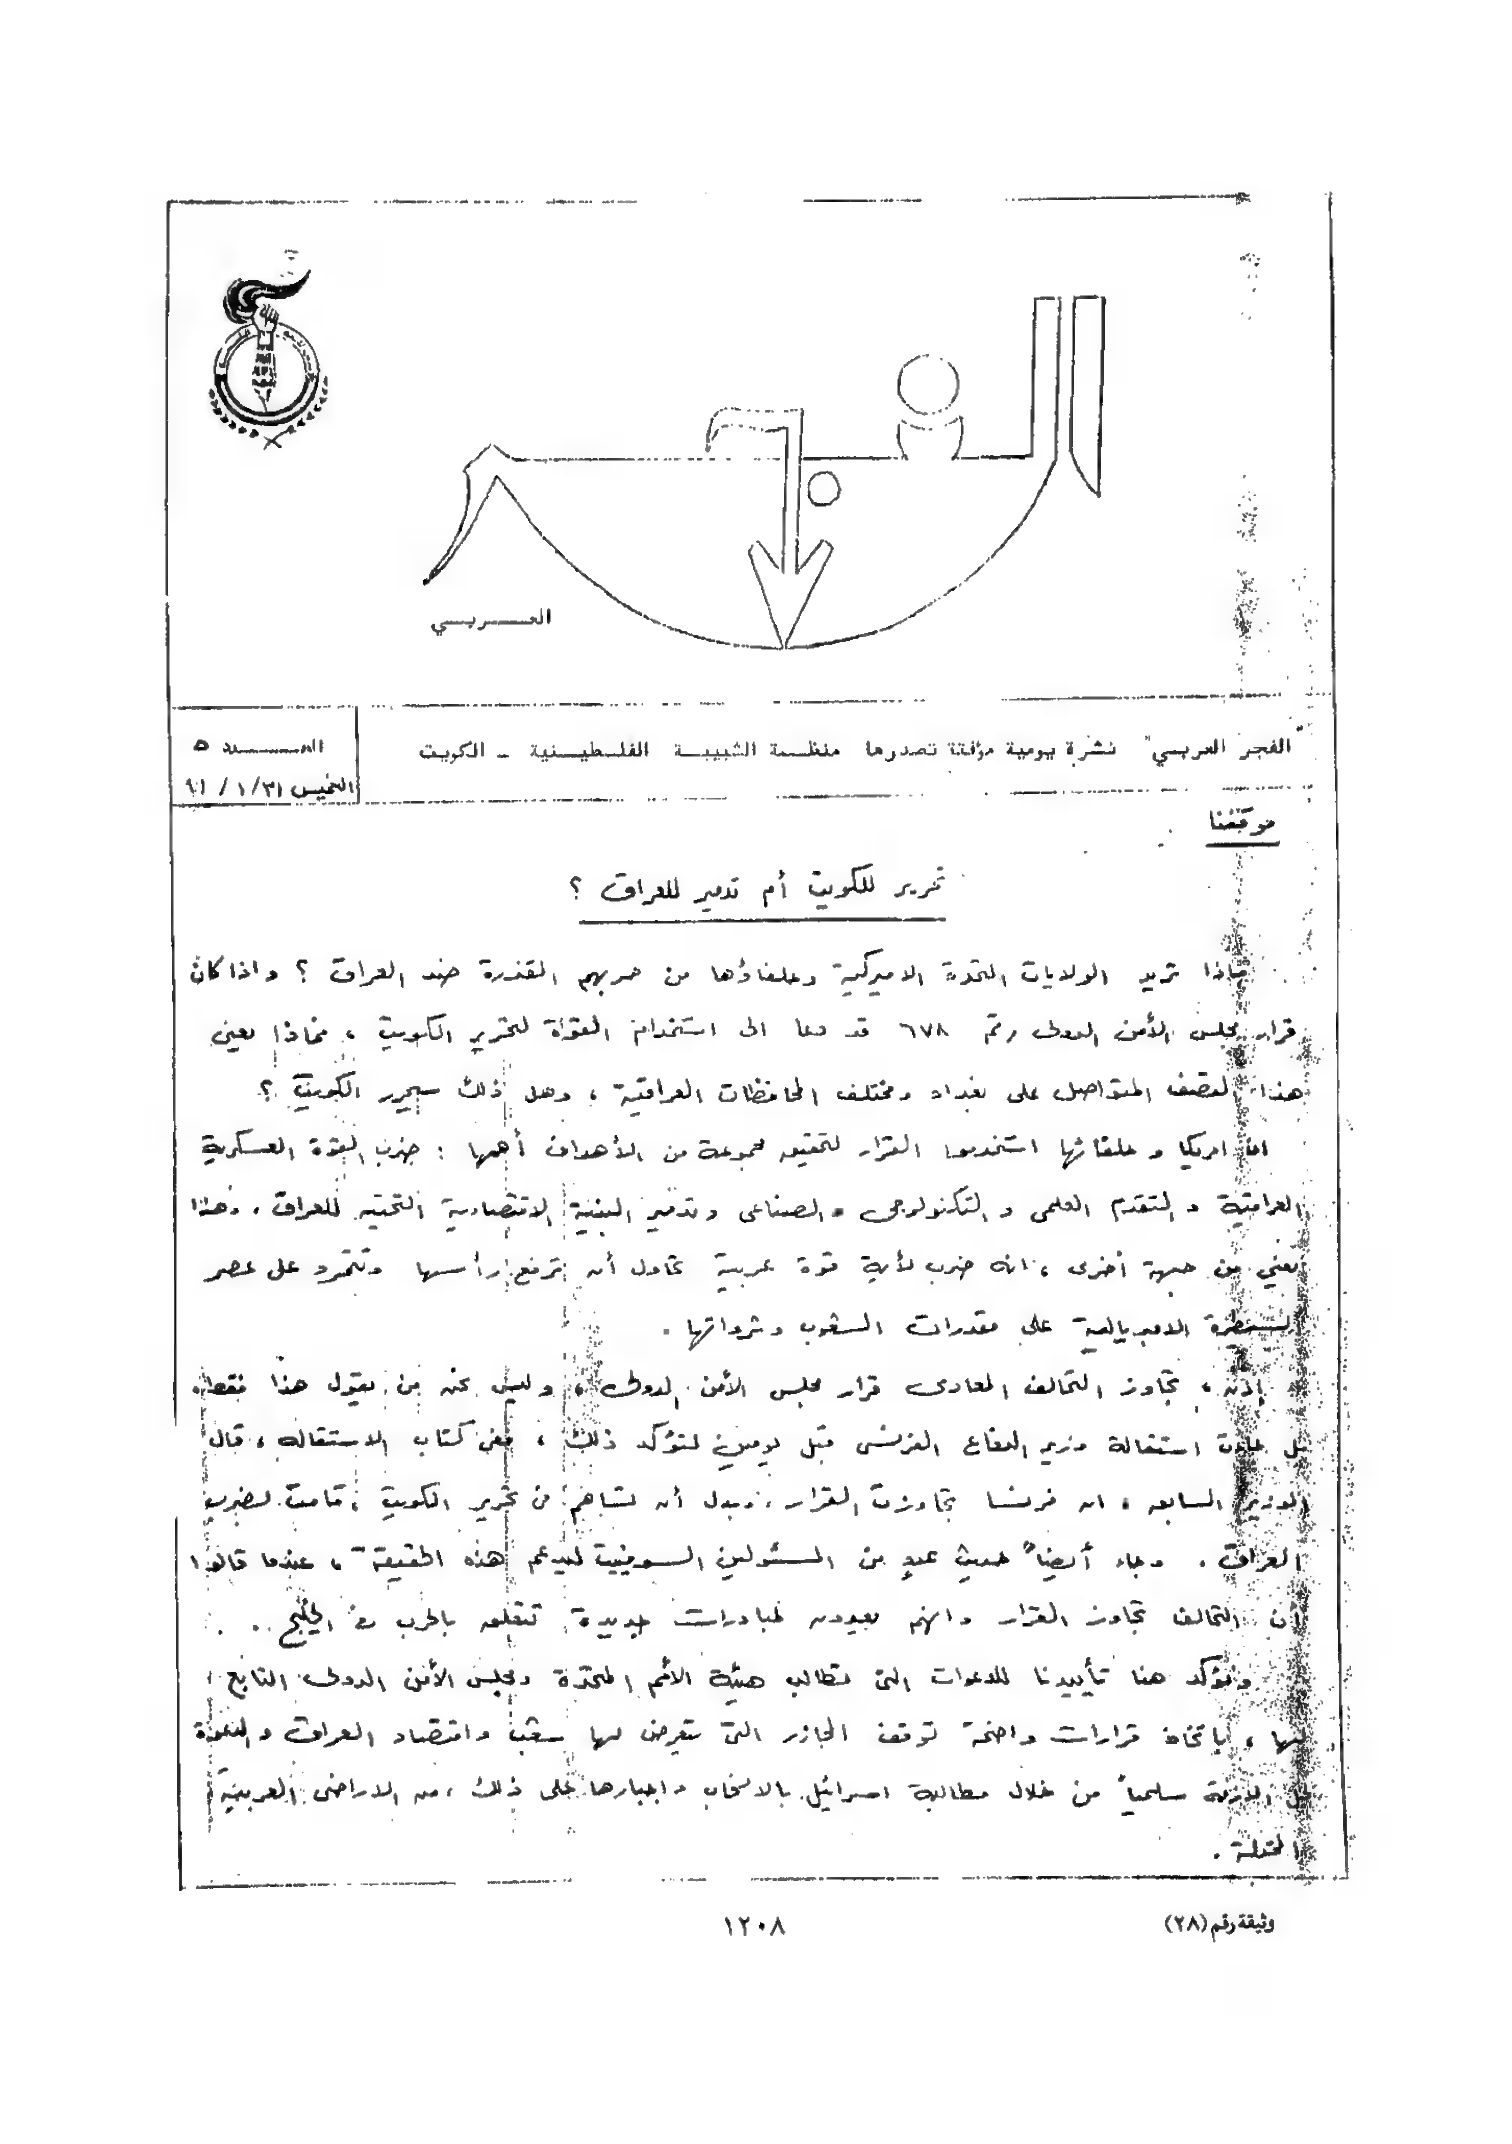 الفجر
العربي
"الفجر العربي" نشرة يومية مؤقتة تصدرها منظمة الشبيبة الفلسطينية - الكويت
العدد ٥
الخميس ٣١/ ١/ ٩١
موقفنا
تحرير للكويت أم تدمير للعراق ؟
ماذا تريد الولايات المتحدة الاميركية وحلفاؤها من حربهم القذرة ضد العراق ؟ واذا كان
قرار مجلس الأمن الدولي رقم ٦٧٨ قد دعا الى استخدام القوة لتحرير الكويت ، فماذا يعني
هذا القصف المتواصل على بغداد ومختلف المحافظات العراقية ، وهل ذلك سيحرر الكويت ؟
ان امريكا و حلفائها استخدموا القرار لتحقيق مجموعة من الأهداف أهمها : ضرب القوة العسكرية
العراقية و التقدم العلمي و التكنولوجي والصناعي وتدمير البنية الاقتصادية التحتيه للعراق ، وهذا
يعني من جهة أخرى ، انه ضرب لأية قوة عربية تحاول أن ترفع رأسها وتتمرد على عصر
السيطرة الامبريالية على مقدرات الشعوب وثرواتها .
إذن ، تجاوز التحالف المعادي قرار مجلس الأمن الدولي ، وليس نحن من يقول هذا فقط ،
بل جاءت استقالة وزير الدفاع الفرنسي قبل يومين لتؤكد ذلك ، ففي كتاب الاستقاله ، قال
الوزير السابق ، ان فرنسا تجاوزت القرار ، وبدل أن تساهم في تحرير الكويت ، قامت بضرب
العراق . وجاء أيضاً حديث عدد من المسئولين السوفييت ليدعم هذه الحقيقة ، عندما قالوا
أن التحالف تجاوز القرار وانهم يعودون لمبادرات جديدة تتعلق بالحرب في الخليج . .
ونؤكد هنا تأييدنا للدعوات التي تطالب هيئة الأمم المتحدة ومجلس الأمن الدولي التابع
لها ، باتخاذ قرارات واضحة لوقف المجازر التي يتعرض لها شعب واقتصاد العراق والدعوة
لحل الازمة سلمياً من خلال مطالبة اسرائيل بالانسحاب واجبارها على ذلك ، من الاراضي العربية
المحتلة .
وثيقة رقم (٢٨)
١٢٠٨